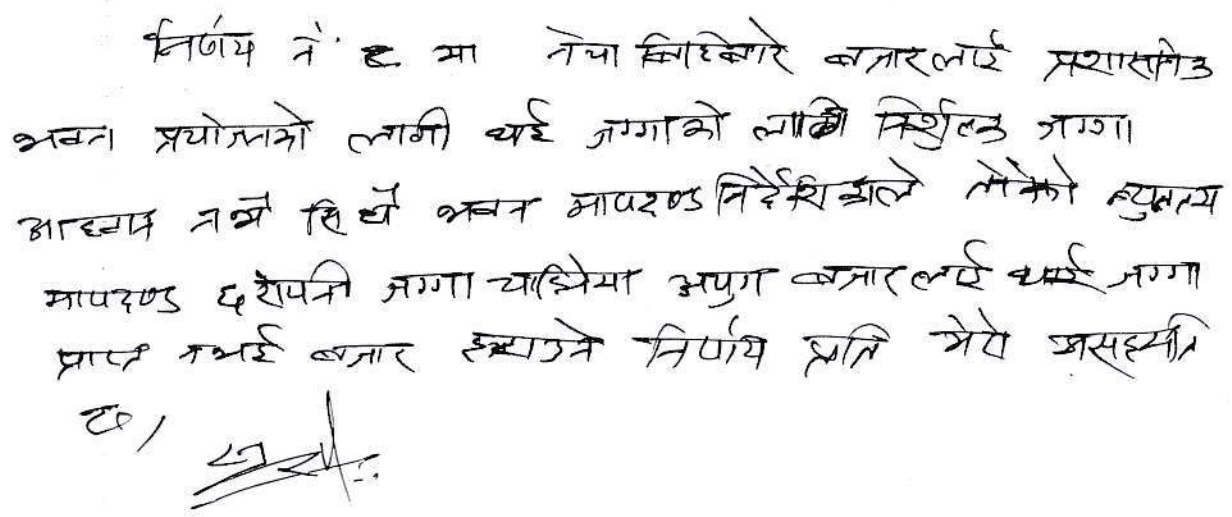 निर्णय नं. ८ मा नेचा बजारलाई प्रशासनिक
भवन प्रयोजनको लागी थाई जग्गाको लागी निर्शुल्क जग्गा
नभै सिधै भवन मापदण्ड निर्देशिकाले तोकेको न्युनतम
मापदण्ड ६ रोपनी जग्गा चाहिनेमा अपुग बजारलाई थाई जग्गा
प्राप्त नभई बजार हटाउने निर्णय प्रति मेरो असहमति
छ।